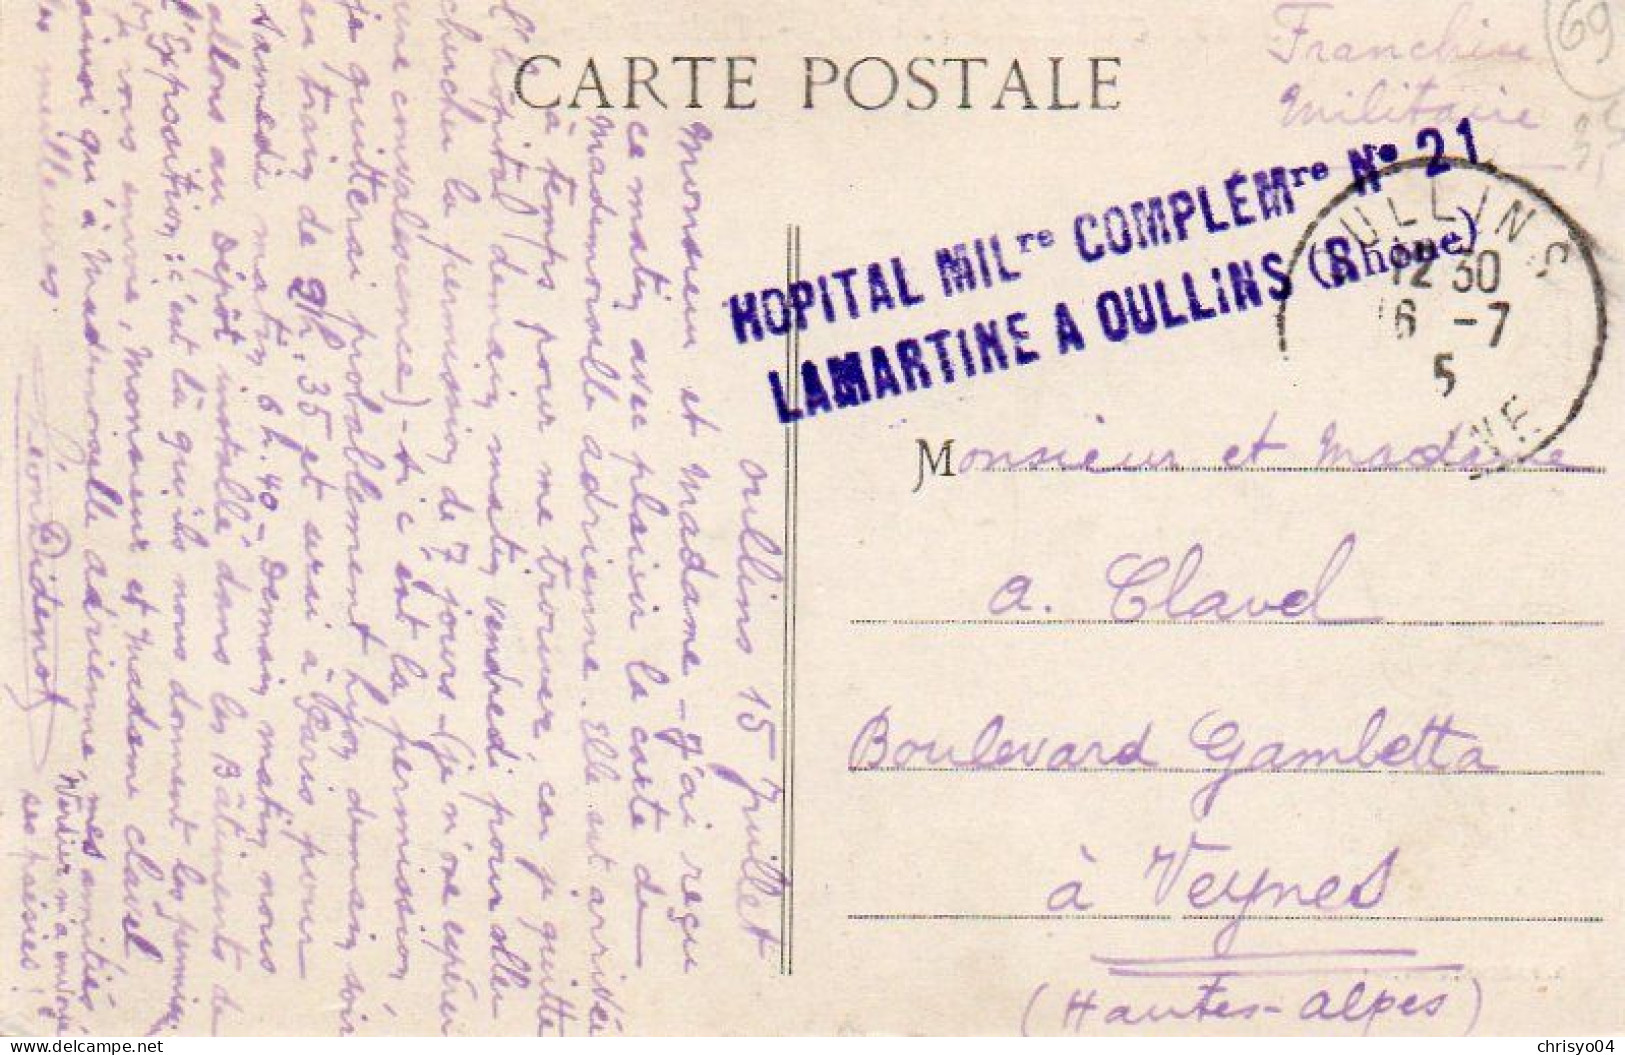 CARTE POSTALE
Franchise
Militaire
69
HOPITAL MILre COMPLÉMre No 21
LAMARTINE A OULLINS (Rhône)
OULLINS
12 30
16 -7
5
Monsieur et Madame
A. Clavel
Boulevard Gambetta
à Veynes
(Hautes-Alpes)
Oullins 15 Juillet
Monsieur et Madame - J'ai reçu
ce matin avec plaisir la carte de
Mademoiselle Adrienne. Elle est arrivée
à temps pour me trouver, car je quitte
l'hôpital demain matin vendredi pour aller
chercher la permission de 7 jours - (je n'ose espérer
une convalescence) - si c'est la permission,
je quitterai probablement Lyon demain soir
au train de 9h.35 et serai à Paris pour
samedi matin 6h.40 - Demain matin nous
allons au Dépôt installé dans les Bâtiments de
l'Exposition: c'est là qu'ils nous donnent les
Je vous envoie, Monsieur et Madame Clavel
ainsi qu'à Mademoiselle Adrienne, mes amitiés
les meilleures.
Léon Didenot
Verdier m'a envoyé
ses
chrisyo04